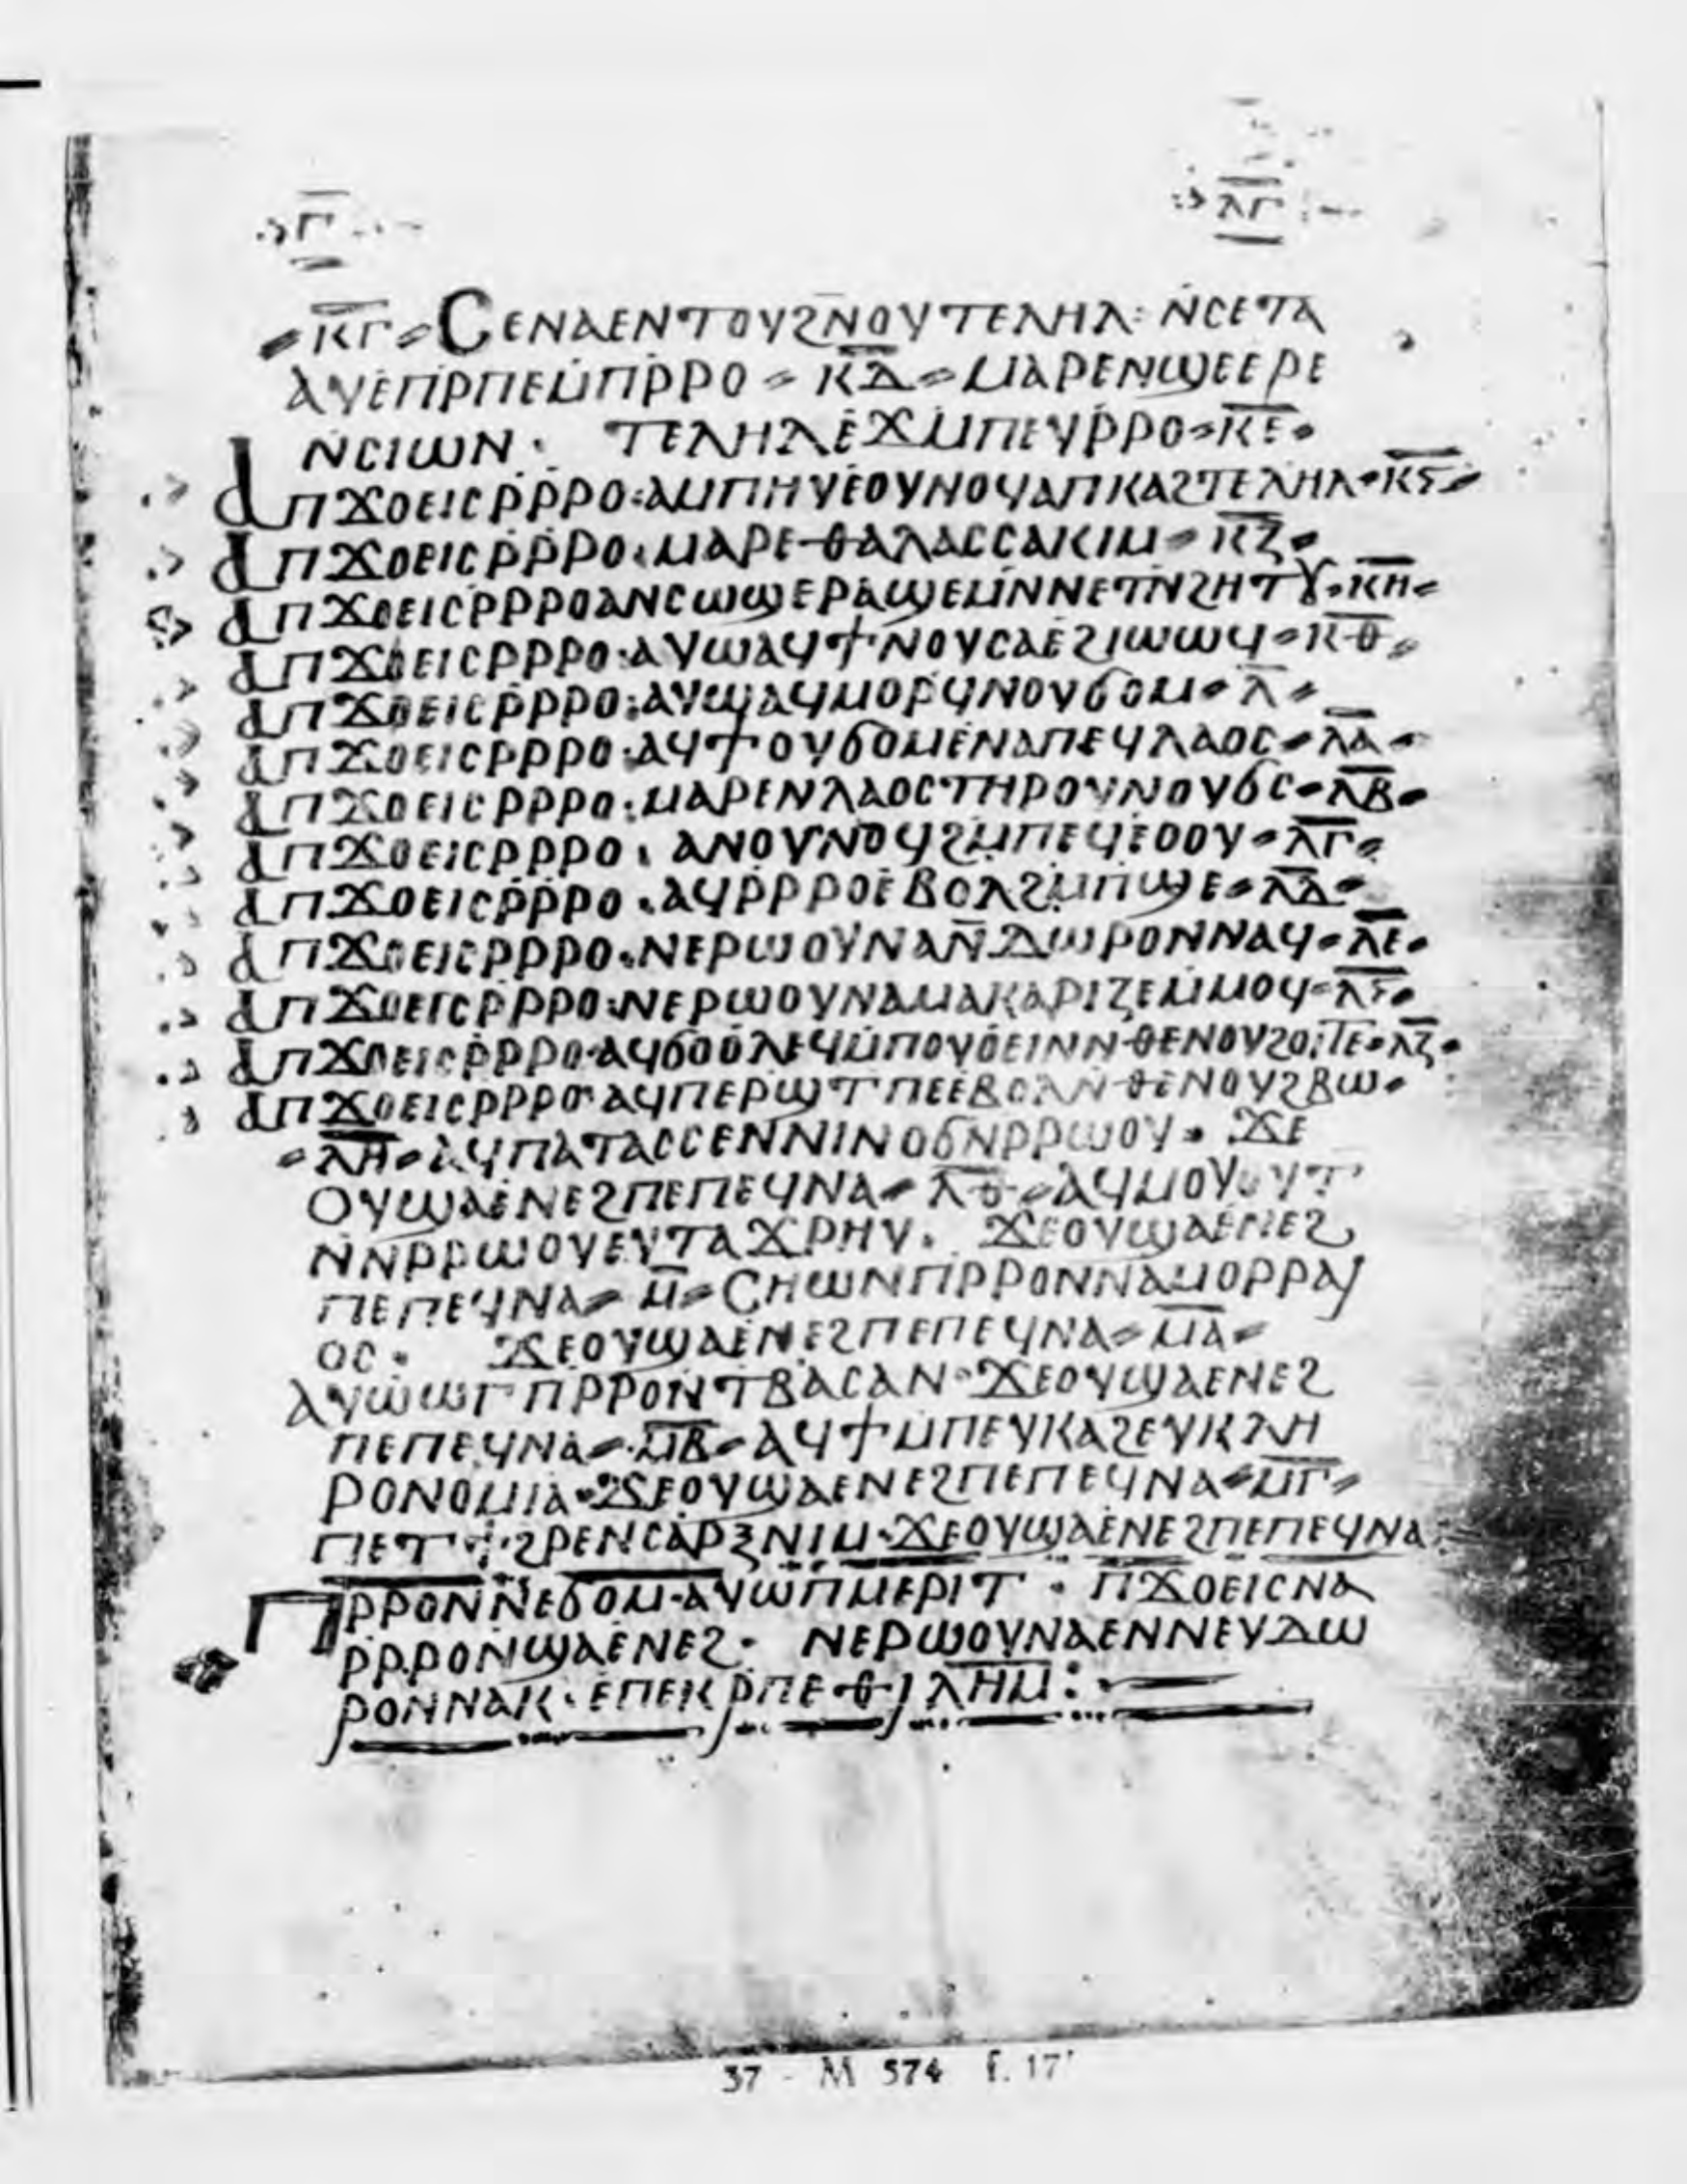 Ⲅ̅ ⲖⲄ̅
ⲔⲄ̅ ⲤⲈⲚⲀⲈⲚⲦⲞⲨϨⲚⲞⲨⲦⲈⲖⲎⲖ: ⲚⲤⲈⲦⲀ
ⲀⲨⲈⲠⲢⲠⲈⲘⲠⲢⲢⲞ ⲔⲆ̅ ⲘⲀⲢⲈⲚϢⲈⲈⲢⲈ
ⲚⲤⲒⲰⲚ: ⲦⲈⲖⲎⲖⲈϪⲘⲠⲈⲨⲢⲢⲞ ⲔⲈ̅
ⲀⲠϪⲞⲈⲒⲤⲢⲢⲢⲞ:ⲀⲘⲠⲎⲨⲈⲞⲨⲚⲞϤⲀⲠⲔⲀϨⲦⲈⲖⲎⲖ ⲔⲊ̅
ⲀⲠϪⲞⲈⲒⲤⲢⲢⲢⲞ:ⲘⲀⲢⲈⲐⲀⲖⲀⲤⲤⲀⲔⲒⲘ ⲔⲌ̅
ⲀⲠϪⲞⲈⲒⲤⲢⲢⲢⲞⲀⲚⲤⲰϢⲈⲢⲀϢⲈⲘⲚⲚⲈⲦⲚϨⲎⲦⲞⲨ ⲔⲎ̅
ⲀⲠϪⲞⲈⲒⲤⲢⲢⲢⲞ:ⲀⲨⲰⲀϤϮⲚⲞⲨⲤⲀⲈϨⲒⲰⲰϤ ⲔⲐ̅
ⲀⲠϪⲞⲈⲒⲤⲢⲢⲢⲞ:ⲀⲨⲰⲀϤⲘⲞⲢϤⲚⲞⲨϬⲞⲘ Ⲗ̅
ⲀⲠϪⲞⲈⲒⲤⲢⲢⲢⲞ:ⲀϤϮⲞⲨϬⲞⲘⲈⲚⲀⲠⲈϤⲖⲀⲞⲤ ⲖⲀ̅
ⲀⲠϪⲞⲈⲒⲤⲢⲢⲢⲞ:ⲘⲀⲢⲈⲚⲖⲀⲞⲤⲦⲎⲢⲞⲨⲚⲞⲨϬⲤ ⲖⲂ̅
ⲀⲠϪⲞⲈⲒⲤⲢⲢⲢⲞ: ⲀⲚⲞⲨⲚⲞϤϨⲘⲠⲈϤⲈⲞⲞⲨ ⲖⲄ̅
ⲀⲠϪⲞⲈⲒⲤⲢⲢⲢⲞ:ⲀϤⲢⲢⲢⲞⲈⲂⲞⲖϨⲘⲠϢⲈ ⲖⲆ̅
ⲀⲠϪⲞⲈⲒⲤⲢⲢⲢⲞ:ⲚⲈⲢⲰⲞⲨⲚⲀⲚ̅ⲆⲰⲢⲞⲚⲚⲀϤ ⲖⲈ̅
ⲀⲠϪⲞⲈⲒⲤⲢⲢⲢⲞ:ⲚⲈⲢⲰⲞⲨⲚⲀⲘⲀⲔⲀⲢⲒⲌⲈⲘⲘⲞϤ ⲖⲊ̅
ⲀⲠϪⲞⲈⲒⲤⲢⲢⲢⲞ:ⲀϤϬⲞⲞⲖⲈϤⲘⲠⲞⲨⲞⲈⲒⲚⲚⲐⲈⲚⲞⲨϨⲞⲒⲦⲈ ⲖⲌ̅
ⲀⲠϪⲞⲈⲒⲤⲢⲢⲢⲞ:ⲀϤⲠⲈⲢϢⲦⲠⲈⲈⲂⲞⲖⲚⲐⲈⲚⲞⲨϨⲂⲰ
ⲖⲎ̅ ⲀϤⲠⲀⲦⲀⲤⲤⲈⲚⲚⲒⲚⲞϬⲚⲢⲢⲰⲞⲨ ϪⲈ
ⲞⲨϢⲀⲈⲚⲈϨⲠⲈⲠⲈϤⲚⲀ ⲖⲐ̅ ⲀϤⲘⲞⲨⲞⲨⲦ
ⲚⲚⲢⲢⲰⲞⲨⲈⲨⲦⲀϪⲢⲎⲨ. ϪⲈⲞⲨϢⲀⲈⲚⲈϨ
ⲠⲈⲠⲈϤⲚⲀ Ⲙ̅ ⲤⲎⲰⲚⲠⲢⲢⲞⲚⲚⲀⲘⲞⲢⲢⲀⲒ
ⲞⲤ. ϪⲈⲞⲨϢⲀⲈⲚⲈϨⲠⲈⲠⲈϤⲚⲀ ⲘⲀ̅
ⲀⲨⲰⲰⲄⲠⲢⲢⲞⲚⲦⲂⲀⲤⲀⲚ ϪⲈⲞⲨϢⲀⲈⲚⲈϨ
ⲠⲈⲠⲈϤⲚⲀ ⲘⲂ̅ ⲀϤϮⲘⲠⲈⲨⲔⲀϨⲈⲨⲔⲖⲎ
ⲢⲞⲚⲞⲘⲒⲀ ϪⲈⲞⲨϢⲀⲈⲚⲈϨⲠⲈⲠⲈϤⲚⲀ ⲘⲄ̅
ⲠⲈⲦϮϨⲢⲈⲚⲤⲀⲢⲜⲚⲒⲘ ϪⲈⲞⲨϢⲀⲈⲚⲈϨⲠⲈⲠⲈϤⲚⲀ:
ⲠⲢⲢⲞⲚⲚⲈϬⲞⲘ ⲀⲨⲰⲠⲘⲈⲢⲒⲦ · ⲠϪⲞⲈⲒⲤⲚⲀ
ⲢⲢⲢⲞⲚϢⲀⲈⲚⲈϨ: ⲚⲈⲢⲰⲞⲨⲚⲀⲈⲚⲚⲈⲨⲆⲰ
ⲢⲞⲚⲚⲀⲔ·ⲈⲠⲈⲔⲢⲠⲈⲐⲒⲖⲎⲘ̅:
37 - M 574 f. 17ʳ